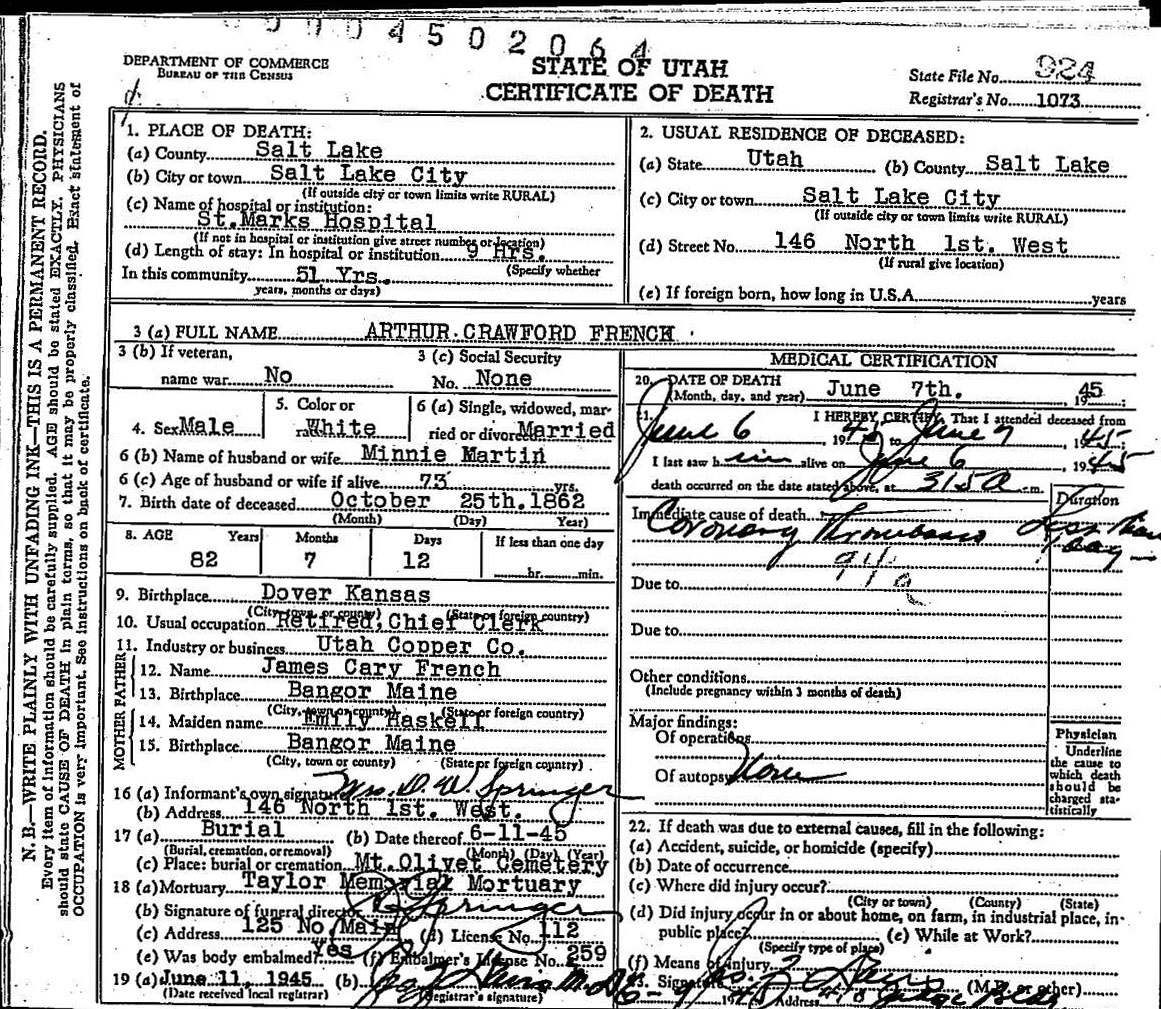 0 0 0 4 5 0 2 0 6 4
DEPARTMENT OF COMMERCE
BUREAU OF THE CENSUS
STATE OF UTAH
CERTIFICATE OF DEATH
State File No. 924
Registrar's No. 1073
N. B.—WRITE PLAINLY WITH UNFADING INK—THIS IS A PERMANENT RECORD.
Every item of information should be carefully supplied. AGE should be stated EXACTLY. PHYSICIANS
should state CAUSE OF DEATH in plain terms, so that it may be properly classified. Exact statement of
OCCUPATION is very important. See instructions on back of certificate.
1. PLACE OF DEATH:
(a) County Salt Lake
(b) City or town Salt Lake City
(If outside city or town limits write RURAL)
(c) Name of hospital or institution:
St.Marks Hospital
(If not in hospital or institution give street number or location)
(d) Length of stay: In hospital or institution 9 Hrs.
(Specify whether
In this community 51 Yrs.
years, months or days)
2. USUAL RESIDENCE OF DECEASED:
(a) State Utah (b) County Salt Lake
(c) City or town Salt Lake City
(If outside city or town limits write RURAL)
(d) Street No. 146 North 1st. West
(If rural give location)
(e) If foreign born, how long in U.S.A. years
3 (a) FULL NAME ARTHUR CRAWFORD FRENCH
3 (b) If veteran,
name war No
3 (c) Social Security
No. None
4. Sex Male
5. Color or
race White
6 (a) Single, widowed, mar-
ried or divorced Married
6 (b) Name of husband or wife Minnie Martin
6 (c) Age of husband or wife if alive 73 yrs.
7. Birth date of deceased October 25th.1862
(Month) (Day) Year)
8. AGE Years Months Days If less than one day
82 7 12 hr. min.
9. Birthplace Dover Kansas
(City, town, or county) (State or foreign country)
10. Usual occupation Retired,Chief Clerk
11. Industry or business Utah Copper Co.
FATHER
12. Name James Cary French
13. Birthplace Bangor Maine
(City, town or county) (State or foreign country)
MOTHER
14. Maiden name Emily Haskell
15. Birthplace Bangor Maine
(City, town or county) (State or foreign country)
16 (a) Informant's own signature Mrs. D. W. Springer
(b) Address 146 North 1st. West.
17 (a) Burial (b) Date thereof 6-11-45
(Burial, cremation, or removal) (Month) (Day) (Year)
(c) Place: burial or cremation Mt.Olivet Cemetery
18 (a) Mortuary Taylor Memorial Mortuary
(b) Signature of funeral director Springer
(c) Address 125 No Main (d) License No. 112
(e) Was body embalmed? yes (f) Embalmer's License No. 259
19 (a) June 11, 1945 (b) M.D.
(Date received local registrar) (Registrar's signature)
MEDICAL CERTIFICATION
20. DATE OF DEATH
(Month, day, and year) June 7th. , 1945 ;
21. I HEREBY CERTIFY, That I attended deceased from
June 6 , 1945 to June 7 , 1945;
I last saw him alive on June 6 , 1945
death occurred on the date stated above, at 3:50 a m.
Duration
Immediate cause of death
Coronary Thrombosis Less than
1 day
94a
Due to
Due to
Other conditions
(Include pregnancy within 3 months of death)
Major findings:
Of operations
Of autopsy None
Physician
Underline
the cause to
which death
should be
charged sta-
tistically
22. If death was due to external causes, fill in the following:
(a) Accident, suicide, or homicide (specify)
(b) Date of occurrence
(c) Where did injury occur?
(City or town) (County) (State)
(d) Did injury occur in or about home, on farm, in industrial place, in
public place? (e) While at Work?
(Specify type of place)
(f) Means of injury
23. Signature (M.D. or other)
Address Judge Bldg